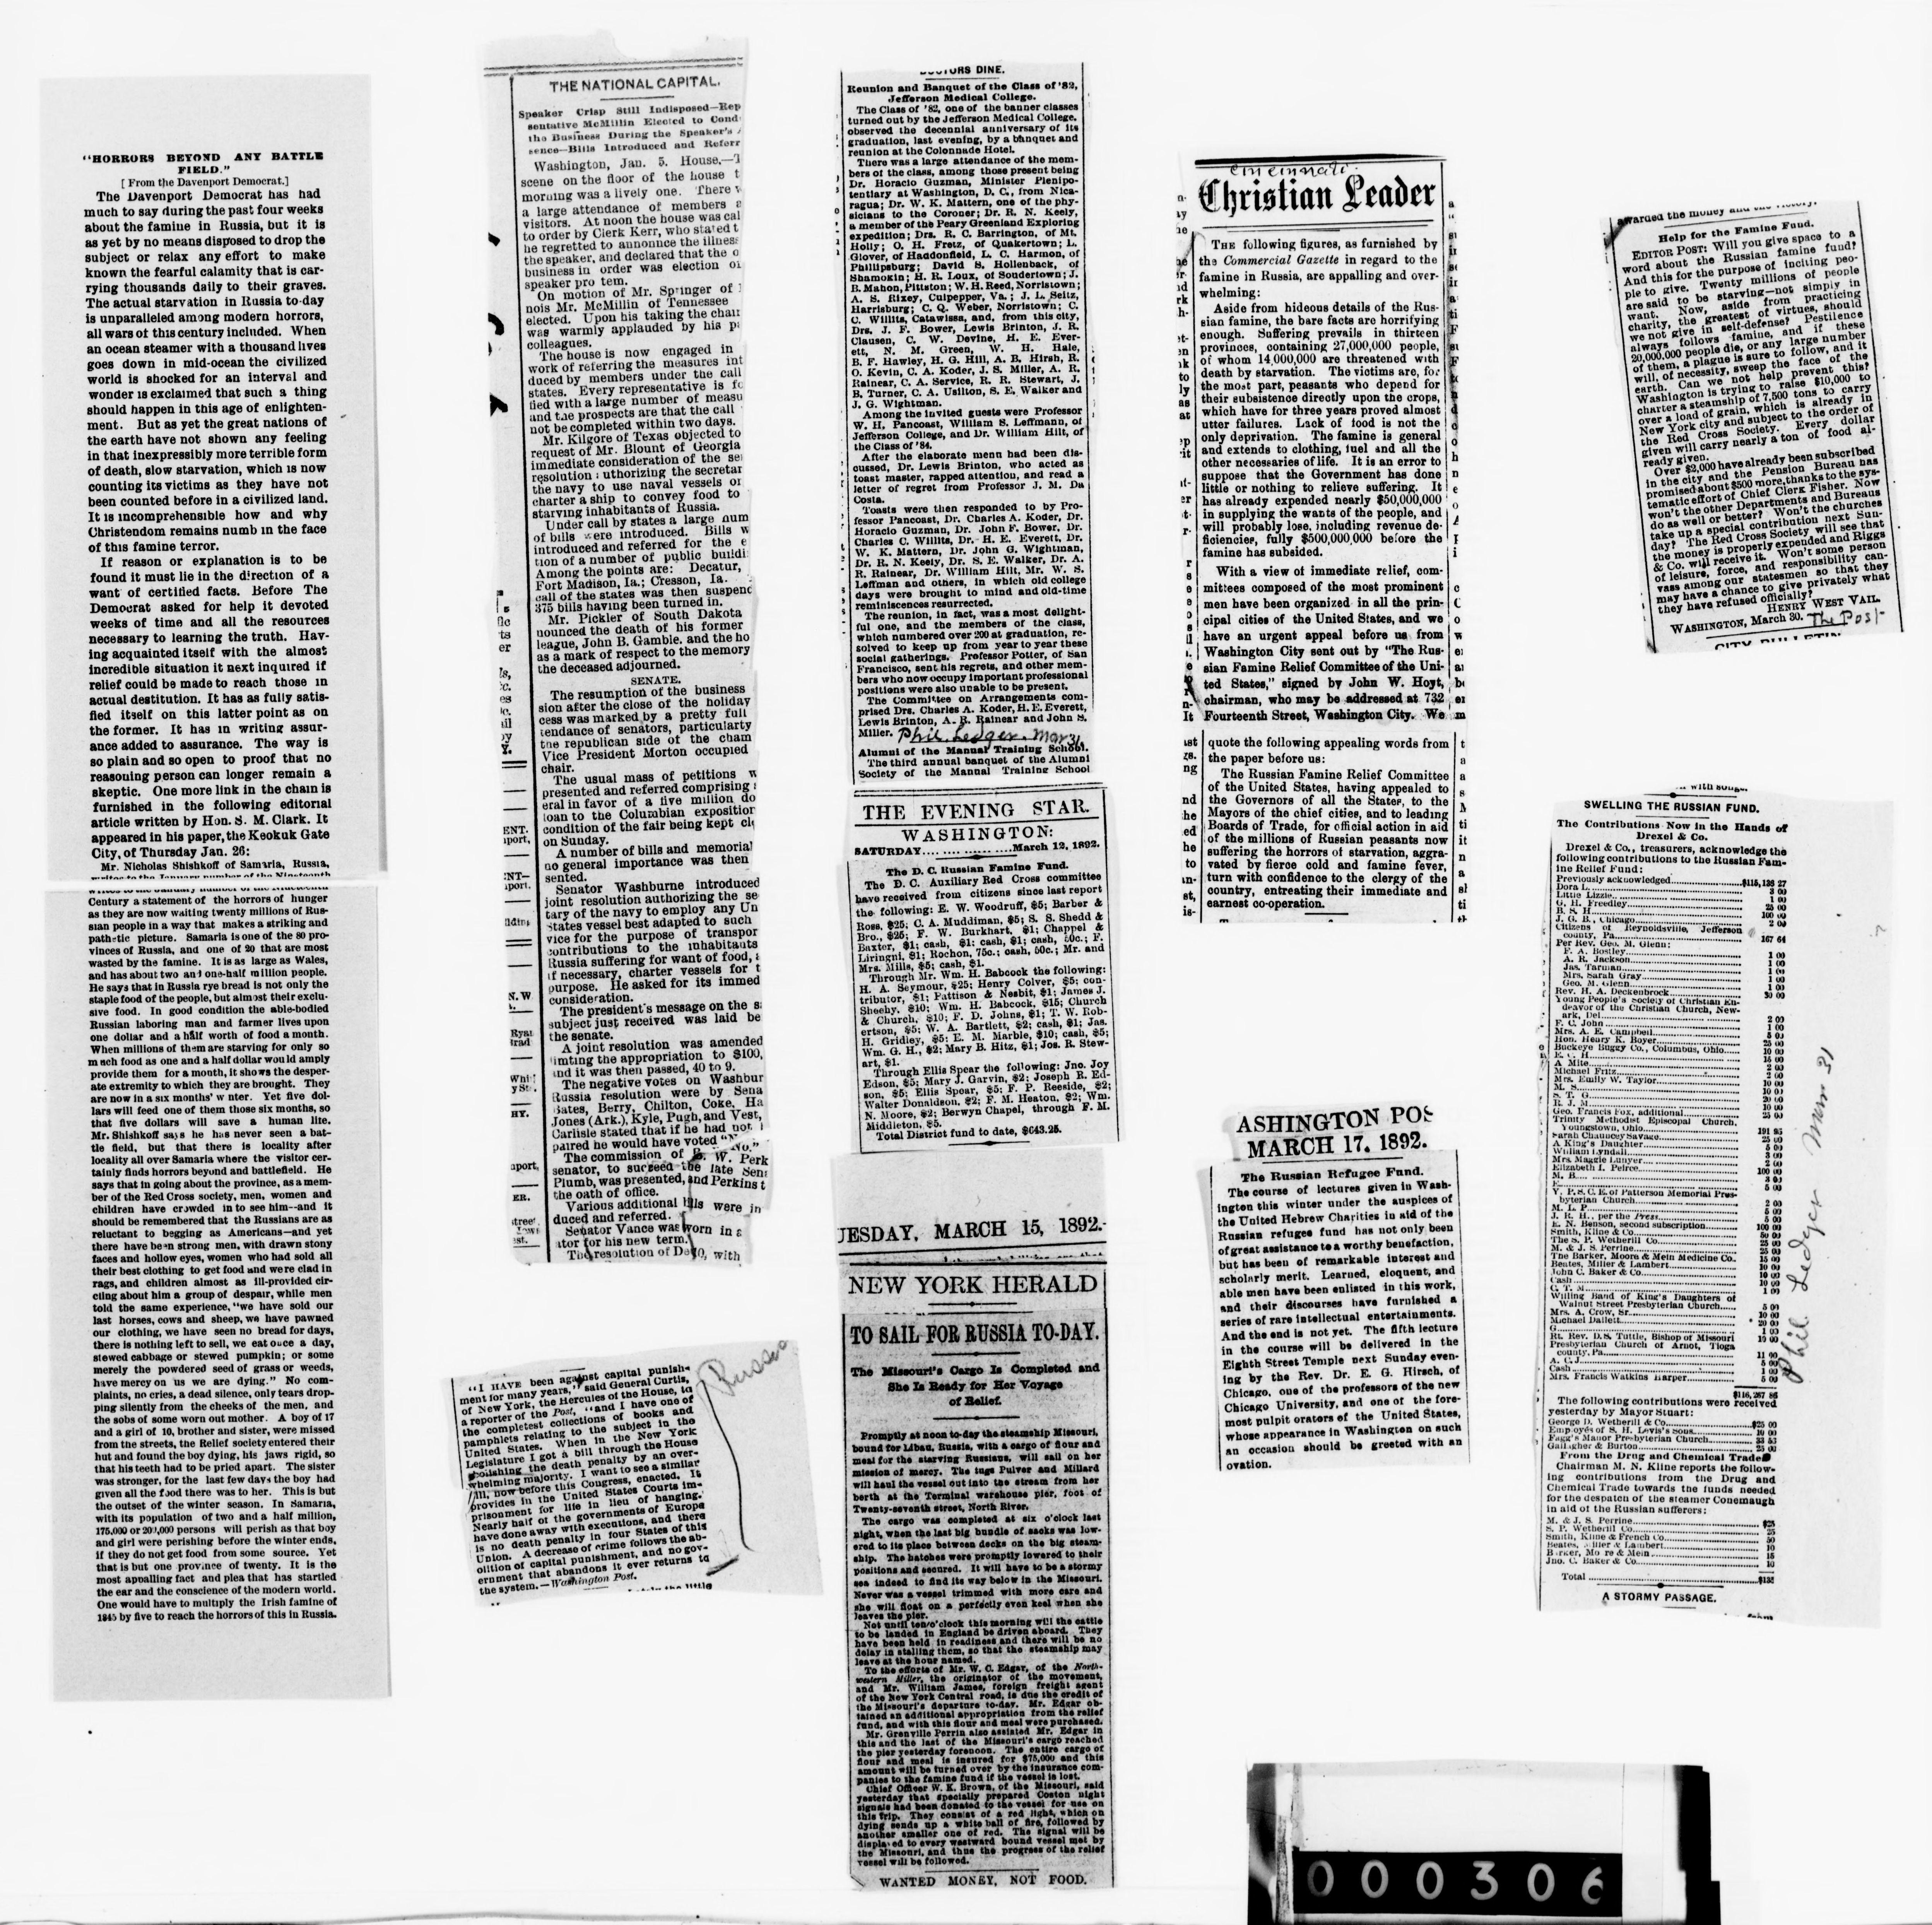 "HORRORS BEYOND ANY BATTLE
FIELD."
[From the Davenport Democrat.]
The Davenport Democrat has had
much to say during the past four weeks
about the famine in Russia, but it is
as yet by no means disposed to drop the
subject or relax any effort to make
known the fearful calamity that is car-
rying thousands daily to their graves.
The actual starvation in Russia to-day
is unparalleled among modern horrors,
all wars of this century included. When
an ocean steamer with a thousand lives
goes down in mid-ocean the civilized
world is shocked for an interval and
wonder is exclaimed that such a thing
should happen in this age of enlighten-
ment. But as yet the great nations of
the earth have not shown any feeling
in that inexpressibly more terrible form
of death, slow starvation, which is now
counting its victims as they have not
been counted before in a civilized land.
It is incomprehensible how and why
Christendom remains numb in the face
of this famine terror.
If reason or explanation is to be
found it must lie in the direction of a
want of certified facts. Before The
Democrat asked for help it devoted
weeks of time and all the resources
necessary to learning the truth. Hav-
ing acquainted itself with the almost
incredible situation it next inquired if
relief could be made to reach those in
actual destitution. It has as fully satis-
fied itself on this latter point as on
the former. It has in writing assur-
ance added to assurance. The way is
so plain and so open to proof that no
reasoning person can longer remain a
skeptic. One more link in the chain is
furnished in the following editorial
article written by Hon. S. M. Clark. It
appeared in his paper, the Keokuk Gate
City, of Thursday Jan. 26:
Mr. Nicholas Shishkoff of Samaria, Russia,
writes to the January number of the Nineteenth
Century a statement of the horrors of hunger
as they are now waiting twenty millions of Rus-
sian people in a way that makes a striking and
pathetic picture. Samaria is one of the 80 pro-
vinces of Russia, and one of 20 that are most
wasted by the famine. It is as large as Wales,
and has about two and one-half million people.
He says that in Russia rye bread is not only the
staple food of the people, but almost their exclu-
sive food. In good condition the able-bodied
Russian laboring man and farmer lives upon
one dollar and a half worth of food a month.
When millions of them are starving for only so
much food as one and a half dollar would amply
provide them for a month, it shows the desper-
ate extremity to which they are brought. They
are now in a six months' winter. Yet five dol-
lars will feed one of them those six months, so
that five dollars will save a human life.
Mr. Shishkoff says he has never seen a bat-
tle field, but that there is locality after
locality all over Samaria where the visitor cer-
tainly finds horrors beyond and battlefield. He
says that in going about the province, as a mem-
ber of the Red Cross society, men, women and
children have crowded in to see him--and it
should be remembered that the Russians are as
reluctant to begging as Americans—and yet
there have been strong men, with drawn stony
faces and hollow eyes, women who had sold all
their best clothing to get food and were clad in
rags, and children almost as ill-provided cir-
cling about him a group of despair, while men
told the same experience, "we have sold our
last horses, cows and sheep, we have pawned
our clothing, we have seen no bread for days,
there is nothing left to sell, we eat once a day,
stewed cabbage or stewed pumpkin; or some
merely the powdered seed of grass or weeds,
have mercy on us we are dying." No com-
plaints, no cries, a dead silence, only tears drop-
ping silently from the cheeks of the men, and
the sobs of some worn out mother. A boy of 17
and a girl of 10, brother and sister, were missed
from the streets, the Relief society entered their
hut and found the boy dying, his jaws rigid, so
that his teeth had to be pried apart. The sister
was stronger, for the last few days the boy had
given all the food there was to her. This is but
the outset of the winter season. In Samaria,
with its population of two and a half million,
175,000 or 200,000 persons will perish as that boy
and girl were perishing before the winter ends,
if they do not get food from some source. Yet
that is but one province of twenty. It is the
most appalling fact and plea that has startled
the ear and the conscience of the modern world.
One would have to multiply the Irish famine of
1845 by five to reach the horrors of this in Russia.
THE NATIONAL CAPITAL.
Speaker Crisp Still Indisposed—Rep
sentative McMillin Elected to Cond
the Business During the Speaker's
sence—Bills Introduced and Referr
Washington, Jan. 5. House.—T
scene on the floor of the house t
morning was a lively one. There
a large attendance of members a
visitors. At noon the house was cal
to order by Clerk Kerr, who stated t
he regretted to announce the illness
the speaker, and declared that the o
business in order was election of
speaker pro tem.
On motion of Mr. Springer of
nois Mr. McMillin of Tennessee
elected. Upon his taking the chair
was warmly applauded by his p
colleagues.
The house is now engaged in
work of referring the measures int
duced by members under the call
states. Every representative is fo
tied with a large number of measu
and the prospects are that the call
not be completed within two days.
Mr. Kilgore of Texas objected to
request of Mr. Blount of Georgia
immediate consideration of the se
resolution uthorizing the secretar
the navy to use naval vessels or
charter a ship to convey food to
starving inhabitants of Russia.
Under call by states a large num
of bills were introduced. Bills w
introduced and referred for the e
tion of a number of public buildi
Among the points are: Decatur,
Fort Madison, Ia.; Cresson, Ia.
call of the states was then suspend
375 bills having been turned in.
Mr. Pickler of South Dakota
nounced the death of his former
league, John B. Gamble, and the ho
as a mark of respect to the memory
the deceased adjourned.
SENATE.
The resumption of the business
sion after the close of the holiday
cess was marked by a pretty full
tendance of senators, particularly
the republican side of the cham
Vice President Morton occupied
chair.
The usual mass of petitions w
presented and referred comprising
eral in favor of a five million do
loan to the Columbian exposition
condition of the fair being kept clo
on Sunday.
A number of bills and memorial
no general importance was then
sented.
Senator Washburne introduced
joint resolution authorizing the se
tary of the navy to employ any Un
States vessel best adapted to such
vice for the purpose of transpor
contributions to the inhabitants
Russia suffering for want of food,
if necessary, charter vessels for t
purpose. He asked for its immed
consideration.
The president's message on the sa
subject just received was laid be
the senate.
A joint resolution was amended
limiting the appropriation to $100,
and it was then passed, 40 to 9.
The negative votes on Washbur
Russia resolution were by Sena
Bates, Berry, Chilton, Coke, Ha
Jones (Ark.), Kyle, Pugh, and Vest,
Carlisle stated that if he had not
paired he would have voted "No."
The commission of W. Perk
senator, to succeed the late Sen
Plumb, was presented, and Perkins t
the oath of office.
Various additional bills were in
duced and referred.
Senator Vance was sworn in a
ator for his new term.
The resolution of with
"I HAVE been against capital punish-
ment for many years," said General Curtis,
of New York, the Hercules of the House, to
a reporter of the Post, "and I have one of
the completest collections of books and
pamphlets relating to the subject in the
United States. When in the New York
Legislature I got a bill through the House
abolishing the death penalty by an over-
whelming majority. I want to see a similar
bill, now before this Congress, enacted. It
provides in the United States Courts im-
prisonment for life in lieu of hanging.
Nearly half of the governments of Europe
have done away with executions, and there
is no death penalty in four States of this
Union. A decrease of crime follows the ab-
olition of capital punishment, and no gov-
ernment that abandons it ever returns to
the system.—Washington Post.
Russia
DOCTORS DINE.
Reunion and Banquet of the Class of '82,
Jefferson Medical College.
The Class of '82, one of the banner classes
turned out by the Jefferson Medical College,
observed the decennial anniversary of its
graduation, last evening, by a banquet and
reunion at the Colonnade Hotel.
There was a large attendance of the mem-
bers of the class, among those present being
Dr. Horacio Guzman, Minister Plenipo-
tentiary at Washington, D. C., from Nica-
ragua; Dr. W. K. Mattern, one of the phy-
sicians to the Coroner; Dr. R. N. Keely,
a member of the Peary Greenland Exploring
expedition; Drs. R. C. Barrington, of Mt.
Holly; O. H. Fretz, of Quakertown; L.
Glover, of Haddonfield, L. C. Harmon, of
Phillipsburg; David S. Hollenback, of
Shamokin; H. R. Loux, of Soudertown; J.
B. Mahon, Pittston; W. H. Reed, Norristown;
A. S. Rixey, Culpepper, Va.; J. L. Seitz,
Harrisburg; C. Q. Weber, Norristown; C.
C. Willits, Catawissa, and, from this city,
Drs. J. F. Bower, Lewis Brinton, J. R.
Clausen, C. W. Devine, H. E. Ever-
ett, N. M. Green, W. H. Hale,
B. F. Hawley, H. G. Hill, A. B. Hirsh, R.
O. Kevin, C. A. Koder, J. S. Miller, A. R.
Rainear, C. A. Service, R. R. Stewart, J.
B. Turner, C. A. Usilton, S. E. Walker and
J. G. Wightman.
Among the invited guests were Professor
W. H. Pancoast, William S. Leffmann, of
Jefferson College, and Dr. William Hilt, of
the Class of '84.
After the elaborate menu had been dis-
cussed, Dr. Lewis Brinton, who acted as
toast master, rapped attention, and read a
letter of regret from Professor J. M. Da
Costa.
Toasts were then responded to by Pro-
fessor Pancoast, Dr. Charles A. Koder, Dr.
Horacio Guzman, Dr. John F. Bower, Dr.
Charles C. Willits, Dr. H. E. Everett, Dr.
W. K. Mattern, Dr. John G. Wightman,
Dr. R. N. Keely, Dr. S. E. Walker, Dr. A.
R. Rainear, Dr. William Hilt, Mr. W. S.
Leffman and others, in which old college
days were brought to mind and old-time
reminiscences resurrected.
The reunion, in fact, was a most delight-
ful one, and the members of the class,
which numbered over 200 at graduation, re-
solved to keep up from year to year these
social gatherings. Professor Potter, of San
Francisco, sent his regrets, and other mem-
bers who now occupy important professional
positions were also unable to be present.
The Committee on Arrangements com-
prised Drs. Charles A. Koder, H. E. Everett,
Lewis Brinton, A. R. Rainear and John S.
Miller. Phil. Ledger. Mar 31
Alumni of the Manual Training School.
The third annual banquet of the Alumni
Society of the Manual Training School
THE EVENING STAR.
WASHINGTON:
SATURDAY..............March 12, 1892.
The D. C. Russian Famine Fund.
The D. C. Auxiliary Red Cross committee
have received from citizens since last report
the following: E. W. Woodruff, $5; Barber &
Ross, $25; C. A. Muddiman, $5; S. S. Shedd &
Bro., $25; F. W. Burkhart, $1; Chappel &
Baxter, $1; cash, $1; cash, $1; cash, 50c.; F.
Liringni, $1; Rochon, 75c.; cash, 50c.; Mr. and
Mrs. Mills, $5; cash, $1.
Through Mr. Wm. H. Babcock the following:
H. A. Seymour, $25; Henry Colver, $5; con-
tributor, $1; Pattison & Nesbit, $1; James J.
Sheeby, $10; Wm. H. Babcock, $15; Church
& Church, $10; F. D. Johns, $1; T. W. Rob-
ertson, $5; W. A. Bartlett, $2; cash, $1; Jas.
H. Gridley, $5; E. M. Marble, $10; cash, $5;
Wm. G. H., $2; Mary B. Hitz, $1; Jos. R. Stew-
art, $1.
Through Ellis Spear the following: Jno. Joy
Edson, $5; Mary J. Garvin, $2; Joseph R. Ed-
son, $5; Ellis Spear, $5; F. P. Reeside, $2;
Walter Donaldson, $2; F. M. Heaton, $2; Wm.
N. Moore, $2; Berwyn Chapel, through F. M.
Middleton, $5.
Total District fund to date, $643.25.
UESDAY, MARCH 15, 1892.
NEW YORK HERALD
TO SAIL FOR RUSSIA TO-DAY.
The Missouri's Cargo Is Completed and
She Is Ready for Her Voyage
of Relief.
Promptly at noon to-day the steamship Missouri,
bound for Libau, Russia, with a cargo of flour and
meal for the starving Russians, will sail on her
mission of mercy. The tugs Pulver and Millard
will haul the vessel out into the stream from her
berth at the Terminal warehouse pier, foot of
Twenty-seventh street, North River.
The cargo was completed at six o'clock last
night, when the last big bundle of sacks was low-
ered to its place between decks on the big steam-
ship. The hatches were promptly lowered to their
positions and secured. It will have to be a stormy
sea indeed to find its way below in the Missouri.
Never was a vessel trimmed with more care and
she will float on a perfectly even keel when she
leaves the pier.
Not until ten o'clock this morning will the cattle
to be landed in England be driven aboard. They
have been held in readiness and there will be no
delay in stalling them, so that the steamship may
leave at the hour named.
To the efforts of Mr. W. C. Edgar, of the North-
western Miller, the originator of the movement,
and Mr. William James, foreign freight agent
of the New York Central road, is due the credit of
the Missouri's departure to-day. Mr. Edgar ob-
tained an additional appropriation from the relief
fund, and with this flour and meal were purchased.
Mr. Granville Perrin also assisted Mr. Edgar in
this and the last of the Missouri's cargo reached
the pier yesterday forenoon. The entire cargo of
flour and meal is insured for $75,000 and this
amount will be turned over by the insurance com-
panies to the famine fund if the vessel is lost.
Chief Officer W. K. Brown, of the Missouri, said
yesterday that specially prepared Coston night
signals had been donated to the vessel for use on
this trip. They consist of a red light, which on
dying sends up a white ball of fire, followed by
another smaller one of red. The signal will be
displayed to every westward bound vessel met by
the Missouri, and thus the progress of the relief
vessel will be followed.
WANTED MONEY, NOT FOOD.
Cincinnati
Christian Leader
THE following figures, as furnished by
the Commercial Gazette in regard to the
famine in Russia, are appalling and over-
whelming:
Aside from hideous details of the Rus-
sian famine, the bare facts are horrifying
enough. Suffering prevails in thirteen
provinces, containing 27,000,000 people,
of whom 14,000,000 are threatened with
death by starvation. The victims are, for
the most part, peasants who depend for
their subsistence directly upon the crops,
which have for three years proved almost
utter failures. Lack of food is not the
only deprivation. The famine is general
and extends to clothing, fuel and all the
other necessaries of life. It is an error to
suppose that the Government has done
little or nothing to relieve suffering. It
has already expended nearly $50,000,000
in supplying the wants of the people, and
will probably lose, including revenue de-
ficiencies, fully $500,000,000 before the
famine has subsided.
With a view of immediate relief, com-
mittees composed of the most prominent
men have been organized in all the prin-
cipal cities of the United States, and we
have an urgent appeal before us from
Washington City sent out by "The Rus-
sian Famine Relief Committee of the Uni-
ted States," signed by John W. Hoyt,
chairman, who may be addressed at 732
Fourteenth Street, Washington City. We
quote the following appealing words from
the paper before us:
The Russian Famine Relief Committee
of the United States, having appealed to
the Governors of all the States, to the
Mayors of the chief cities, and to leading
Boards of Trade, for official action in aid
of the millions of Russian peasants now
suffering the horrors of starvation, aggra-
vated by fierce cold and famine fever,
turn with confidence to the clergy of the
country, entreating their immediate and
earnest co-operation.
ASHINGTON POS
MARCH 17, 1892.
The Russian Refugee Fund.
The course of lectures given in Wash-
ington this winter under the auspices of
the United Hebrew Charities in aid of the
Russian refugee fund has not only been
of great assistance to a worthy benefaction,
but has been of remarkable interest and
scholarly merit. Learned, eloquent, and
able men have been enlisted in this work,
and their discourses have furnished a
series of rare intellectual entertainments.
And the end is not yet. The fifth lecture
in the course will be delivered in the
Eighth Street Temple next Sunday even-
ing by the Rev. Dr. E. G. Hirsch, of
Chicago, one of the professors of the new
Chicago University, and one of the fore-
most pulpit orators of the United States,
whose appearance in Washington on such
an occasion should be greeted with an
ovation.
awarded the money and the victory.
Help for the Famine Fund.
EDITOR POST: Will you give space to a
word about the Russian famine fund?
And this for the purpose of inciting peo-
ple to give. Twenty millions of people
are said to be starving—not simply in
want. Now, aside from practicing
charity, the greatest of virtues, should
we not give in self-defense? Pestilence
always follows famine, and if these
20,000,000 people die, or any large number
of them, a plague is sure to follow, and it
will, of necessity, sweep the face of the
earth. Can we not help prevent this?
Washington is trying to raise $10,000 to
charter a steamship of 7,500 tons to carry
over a load of grain, which is already in
New York city and subject to the order of
the Red Cross Society. Every dollar
given will carry nearly a ton of food al-
ready given.
Over $2,000 have already been subscribed
in the city and the Pension Bureau has
promised about $500 more, thanks to the sys-
tematic effort of Chief Clerk Fisher. Now
won't the other Departments and Bureaus
do as well or better? Won't the churches
take up a special contribution next Sun-
day? The Red Cross Society will see that
the money is properly expended and Riggs
& Co. will receive it. Won't some person
of leisure, force, and responsibility can-
vass among our statesmen so that they
may have a chance to give privately what
they have refused officially?
HENRY WEST VAIL.
WASHINGTON, March 30. The Post
CITY BULLETIN
SWELLING THE RUSSIAN FUND.
The Contributions Now in the Hands of
Drexel & Co.
Drexel & Co., treasurers, acknowledge the
following contributions to the Russian Fam-
ine Relief Fund:
Previously acknowledged..........$115,136 27
Dora L.......... 3 00
Little Lizzie.......... 1 00
G. H. Freedley.......... 25 00
B. S. H.......... 100 00
J. G. B., Chicago.......... 2 00
Citizens of Reynoldsville, Jefferson
county, Pa.......... 167 64
Per Rev. Geo. M. Glenn:
F. A. Bostley.......... 1 00
A. R. Jackson.......... 1 00
Jas. Tarman.......... 1 00
Mrs. Sarah Gray.......... 1 00
Geo. M. Glenn.......... 1 00
Rev. H. A. Deckenbrock.......... 30 00
Young People's Society of Christian En-
deavor of the Christian Church, New-
ark, Del.......... 2 00
F. C. John.......... 1 00
Mrs. A. E. Campbell.......... 5 00
Hon. Henry K. Boyer.......... 25 00
Buckeye Buggy Co., Columbus, Ohio.......... 10 00
E. C. H.......... 15 00
A Mite.......... 2 00
Michael Fritz.......... 2 00
Mrs. Emily W. Taylor.......... 10 00
M. S.......... 10 00
S. T. G.......... 20 00
R. J. M.......... 10 00
Geo. Francis Fox, additional.......... 25 00
Trinity Methodist Episcopal Church,
Youngstown, Ohio.......... 191 95
Sarah Chauncey Savage.......... 25 00
A King's Daughter.......... 5 00
William Lyndall.......... 3 00
Mrs. Maggie Lunyer.......... 2 00
Elizabeth I. Peirce.......... 100 00
M. B.......... 3 00
E.......... 5 00
Y. P. S. C. E. of Patterson Memorial Pres-
byterian Church.......... 2 00
M. L. P.......... 5 00
J. R. H., per the Press.......... 5 00
E. N. Benson, second subscription.......... 100 00
Smith, Kline & Co.......... 50 00
The S. P. Wetherill Co.......... 25 00
M. & J. S. Perrine.......... 25 00
The Barker, Moore & Mein Medicine Co.......... 15 00
Beates, Miller & Lambert.......... 10 00
John C. Baker & Co.......... 10 00
Cash.......... 10 00
C. T. M.......... 1 00
Willing Band of King's Daughters of
Walnut Street Presbyterian Church.......... 5 00
Mrs. A. Crow, Sr.......... 10 00
Michael Dallett.......... 20 00
G.......... 1 00
Rt. Rev. D. S. Tuttle, Bishop of Missouri 10 00
Presbyterian Church of Arnot, Tioga
county, Pa.......... 11 00
A. C. J.......... 5 00
Cash.......... 1 00
Mrs. Francis Watkins Harper.......... 5 00
$116,267 86
The following contributions were received
yesterday by Mayor Stuart:
George D. Wetherill & Co..........$25 00
Employés of S. H. Levis's Sons.......... 10 00
Fagg's Manor Presbyterian Church.......... 33 53
Gallagher & Burton.......... 25 00
From the Drug and Chemical Trade
Chairman M. N. Kline reports the follow-
ing contributions from the Drug and
Chemical Trade towards the funds needed
for the despatch of the steamer Conemaugh
in aid of the Russian sufferers:
M. & J. S. Perrine..........$25
S. P. Wetherill Co.......... 25
Smith, Kline & French Co.......... 50
Beates, Miller & Lambert.......... 10
Barker, Moore & Mein.......... 15
Jno. C. Baker & Co.......... 10
Total..........$135
A STORMY PASSAGE.
Phil Ledger Mar 31
000306